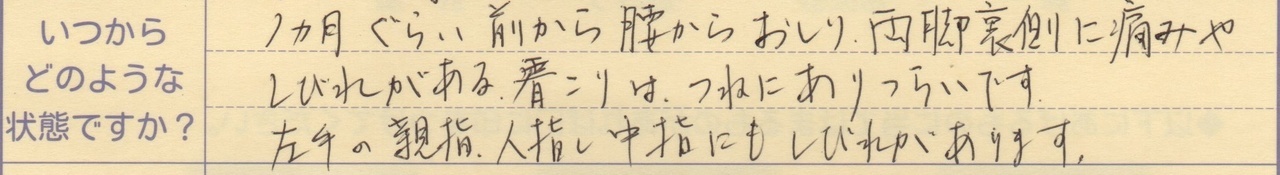 いつから
どのような
状態ですか?
1カ月ぐらい前から腰からおしり、両脚裏側に痛みや
しびれがある。肩こりは、つねにありつらいです。
左手の親指、人指し中指にもしびれがあります。